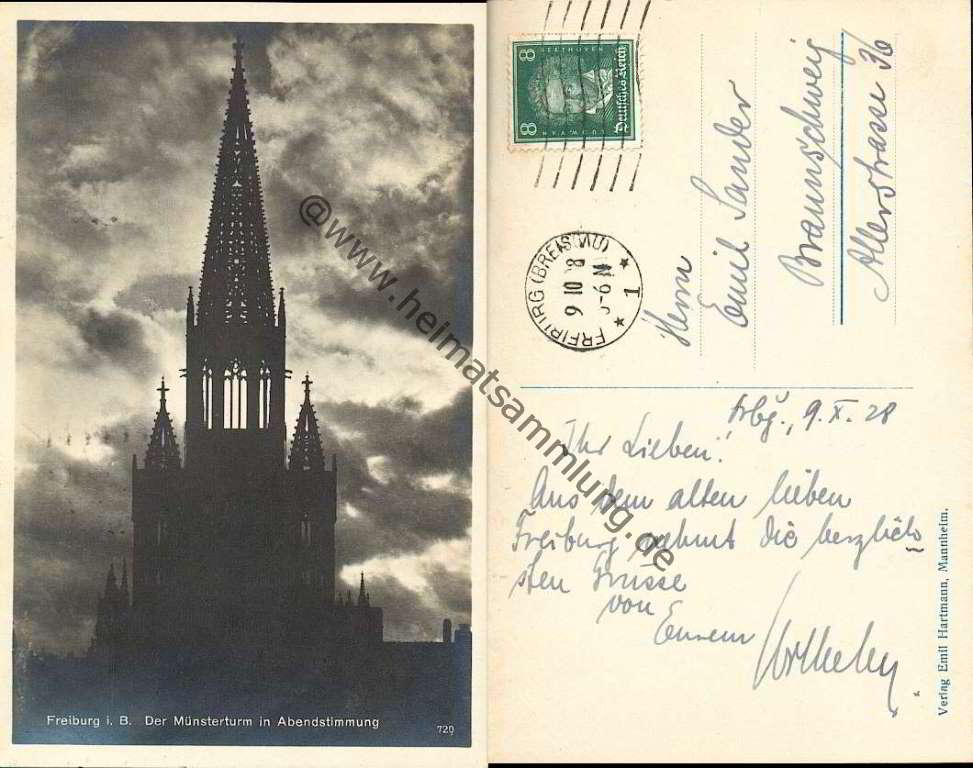 Freiburg i. B. Der Münsterturm in Abendstimmung
720
@www.heimatsammlung.de
8 BEETHOVEN 8
Deutsches Reich
LUDWIG VAN
FREIBURG (BREISGAU)
9 10 28
5-6 N
* 1 *
Herrn
Emil Sander
Braunschweig
Allerstrasse 36
Frbg., 9.X.28
Ihr Lieben!
Aus dem alten lieben
Freiburg nehmt die herzlich-
sten Grüsse
von
Eurem
Verlag Emil Hartmann, Mannheim.